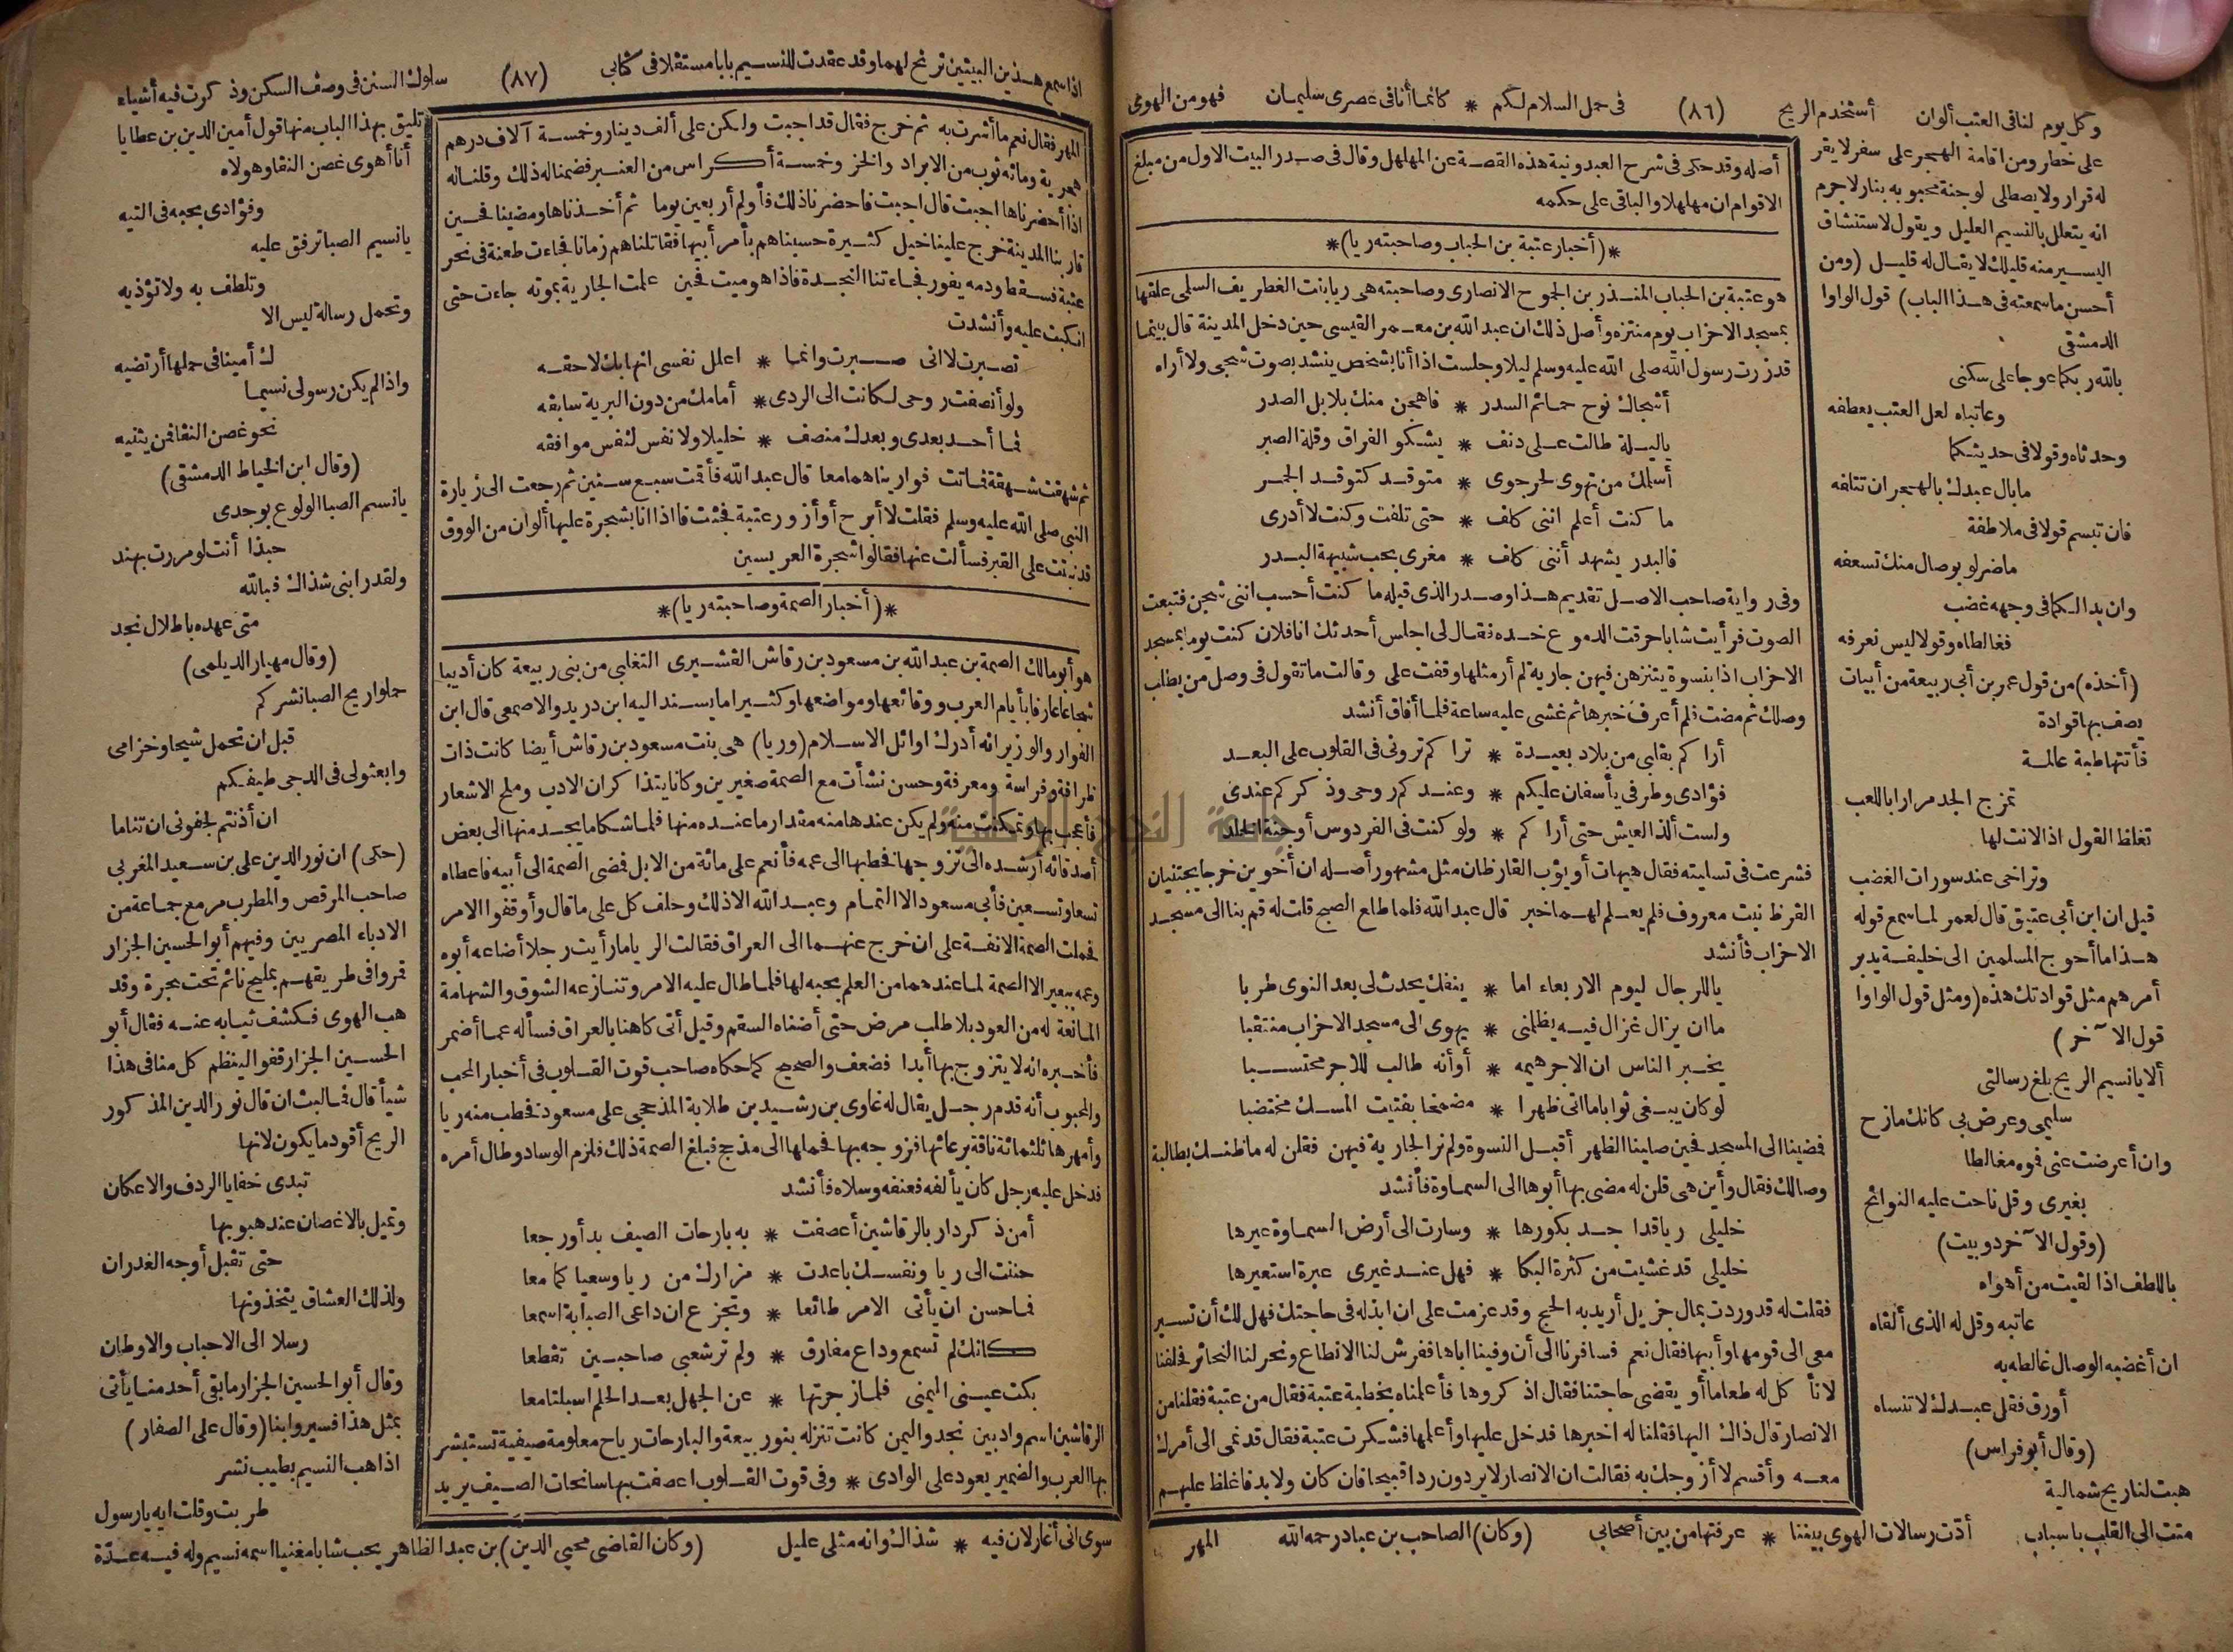 وكل يوم لنا فى العتب ألوان أستخدم الريح (٨٦) فى حمل السلام لكم * كانما أنا فى عصرى سليمان فهو من الهوى
على خطار ومن اقامة الهجر على سفر لا يقر
له قرار ولا يصطلى لوجنة محبوبه بنار لاجرم
انه يتعلل بالنسيم العليل ويقول لاستنشاق
اليسير منه قليلك لا يقال له قليل (ومن
أحسن ما سمعته فى هذا الباب) قول الواوا
الدمشقى
بالله ربكما عوجا على سكنى
وعاتباه لعل العتب يعطفه
وحدثاه وقولا فى حديثكما
ما بال عبدك بالهجر ان تتلفه
فان تبسم قولا فى ملاطفة
ما ضر لو بوصال منك تسعفه
وان بدا لكما فى وجهه غضب
فغالطاه وقولا ليس نعرفه
(أخذه) من قول عمر بن أبى ربيعة من أبيات
يصف بها قوادة
فأتتها طبة عالمة
تمزج الجد مرارا باللعب
تغلظ القول اذا لانت لها
وتراخى عند سورات الغضب
قيل ان ابن أبى عتيق قال لعمر لما سمع قوله
هذا ما أحوج المسلمين الى خليفة يدبر
أمرهم مثل قوادتك هذه (ومثل قول الواوا
قول الآخر)
ألا يا نسيم الريح بلغ رسالتى
سليمى وعرض بى كانك مازح
وان أعرضت عنى فموه مغالطا
بغيرى وقل ناحت عليه النوائح
(وقول الآخر دوبيت)
باللطف اذا لقيت من أهواه
عاتبه وقل له الذى ألقاه
ان أغضبه الوصال غالطه به
أورق فقل عبدك لا تنساه
(وقال أبو فراس)
هبت لنا ريح شمالية
متت الى القلب باسباب أدّت رسالات الهوى بيننا * عرفتها من بين أصحابى (وكان) الصاحب بن عباد رحمه الله
أصله وقد حكى فى شرح العبدونية هذه القصة عن المهلهل وقال فى صدر البيت الاول من مبلغ
الاقوام ان مهلهلا والباقى على حكمه
*(أخبار عتبة بن الحباب وصاحبته ريا)*
هو عتبة بن الحباب المنذر بن الجموح الانصارى وصاحبته هى ريا بنت الغطريف السلمى علقها
بمسجد الاحزاب يوم منتزه وأصل ذلك ان عبد الله بن معمر القيسى حين دخل المدينة قال بينما
قد زرت رسول الله صلى الله عليه وسلم ليلا وجلست اذا أنا بشخص ينشد بصوت شجى ولا أراه
أشجاك نوح حمائم السدر * فاهجن منك بلابل الصدر
ياليلة طالت على دنف * يشكو الفراق وقلة الصبر
أسلمك من تهوى لحر جوى * متوقد كتوقد الجمر
ما كنت أعلم اننى كلف * حتى تلفت وكنت لا أدرى
فالبدر يشهد أننى كلف * مغرى بحب شبيهة البدر
وفى رواية صاحب الاصل تقديم هذا وصدر الذى قبله ما كنت أحسب اننى شجن فتبعت
الصوت فرأيت شابا حرقت الدموع خده فقال لى اجلس أحدثك انا فلان كنت يوما بمسجد
الاحزاب اذا بنسوة يتنزهن فيهن جارية لم أر مثلها وقفت على وقالت ما تقول فى وصل من يطلب
وصلك ثم مضت فلم أعرف خبرها ثم غشى عليه ساعة فلما أفاق أنشد
أرا كم بقلبى من بلاد بعيدة * ترا كم ترونى فى القلوب على البعد
فؤادى وطرفى يأسفان عليكم * وعندكم روحى وذكركم عندى
ولست ألذ العيش حتى أرا كم * ولو كنت فى الفردوس أوجنة الخلد
فشرعت فى تسليته فقال هيهات أو يؤب القارظان مثل مشهور أصله ان أخوين خرجا يجتنيان
القرظ نبت معروف فلم يعلم لهما خبر قال عبد الله فلما طلع الصبح قلت له قم بنا الى مسجد
الاحزاب فأنشد
يا للرجال ليوم الاربعاء اما * ينفك يحدث لى بعد النوى طربا
ما ان يزال غزال فيه يظلمنى * يهوى الى مسجد الاحزاب منتقبا
يخبر الناس ان الاجر همه * أو أنه طالب للاجر محتسبا
لو كان يبغى ثوابا ما اتى ظهرا * مضمخا بفتيت المسك مختضبا
فمضينا الى المسجد فحين صلينا الظهر أقبل النسوة ولم نر الجارية فيهن فقلن له ما ظنك بطالبة
وصالك فقال وأين هى قلن له مضى بها أبوها الى السماوة فأنشد
خليلى ريا قدا جد بكورها * وسارت الى أرض السماوة عيرها
خليلى قد غشيت من كثرة البكا * فهل عند غيرى عبرة استعيرها
فقلت له قد وردت بمال جزيل أريد به الحج وقد عزمت على ان ابذله فى حاجتك فهل لك أن تسير
معى الى قومها وأبيها فقال نعم فسافرنا الى أن وفينا اباها ففرش لنا الانطاع ونحر لنا النحائر فحلفنا
لا نأكل له طعاما أو يقضى حاجتنا فقال اذكروها فأعلمناه بخطبة عتبة فقال من عتبة فقلنا من
الانصار قال ذاك اليها فقلنا له اخبرها فدخل عليها وأعلمها فشكرت عتبة فقال قد نمى الى أمرك
معه وأقسم لا أزوجك به فقالت ان الانصار لا يردون ردا قبيحا فان كان ولا بد فاغلظ عليهم
المهر
اذا سمع هذين البيتين ترنح لهما وقد عقدت للنسيم بابا مستقلا فى كتابى (٨٧) سلوك السنن فى وصف السكن وذكرت فيه أشياء
المهر فقال نعم ما أشرت به ثم خرج فقال قد اجبت ولكن على ألف دينار وخمسة آلاف درهم
هجرية ومائة ثوب من الابراد والخز وخمسة أكراس من العنبر فضمنا له ذلك وقلنا له
اذا أحضرناها اجبت قال اجبت فاحضرنا ذلك فأولم أربعين يوما ثم أخذناها ومضينا فحين
قاربنا المدينة خرج علينا خيل كثيرة حسبناهم بأمر أبيها فقاتلناهم زمانا فجاءت طعنة فى نحر
عتبة فسقط ودمه يفور فجاءتنا النجدة فاذا هو ميت فحين علمت الجارية بموته جاءت حتى
انكبت عليه وأنشدت
تصبرت لا انى صبرت وانما * اعلل نفسى انها بك لاحقه
ولو أنصفت روحى لكانت الى الردى * أمامك من دون البرية سابقه
فما أحد بعدى وبعدك منصف * خليلا ولا نفس لنفس موافقه
ثم شهقت شهقة فماتت فواريناهما معا قال عبد الله فأقمت سبع سنين ثم رجعت الى زيارة
النبى صلى الله عليه وسلم فقلت لا أبرح أو أزور عتبة فجئت فاذا انا بشجرة عليها ألوان من الورق
قد نبتت على القبر فسألت عنها فقالوا شجرة العريسين
*(أخبار الصمة وصاحبته ريا)*
هو أبو مالك الصمة بن عبد الله بن مسعود بن رقاش القشيرى التغلبى من بنى ربيعة كان أديبا
شجاعا عارفا بأيام العرب ووقائعها ومواضعها وكثيرا ما يسند اليه ابن دريد والاصمعى قال ابن
الفوار والوزير انه أدرك اوائل الاسلام (وريا) هى بنت مسعود بن رقاش أيضا كانت ذات
ظرافة وفراسة ومعرفة وحسن نشأت مع الصمة صغيرين وكانا يتذاكران الادب وملح الاشعار
فأعجب بها وتمكنت منه ولم يكن عندها منه مقدار ما عنده منها فلما شكا ما يجد منها الى بعض
أصدقائه أرشده الى تزويجها فخطبها الى عمه فأنعم على مائة من الابل فمضى الصمة الى أبيه فاعطاه
تسعا وتسعين فأبى مسعود الا التمام وعبد الله الا ذلك وحلف كل على ما قال وأوقفوا الامر
فحملت الصمة الانفة على ان خرج عنهما الى العراق فقالت الريا ما رأيت رجلا أضاعه أبوه
وعمه ببعير الا الصمة لما عندهما من العلم بحبه لها فلما طال عليه الامر وتنازعه الشوق والشهامة
المانعة له من العود بلا طلب مرض حتى أضناه السقم وقيل أتى كاهنا بالعراق فسأله عما أضمر
فأخبره انه لا يتزوج بها أبدا فضعف والصحيح كما حكاه صاحب قوت القلوب فى أخبار المحب
والمحبوب أنه قدم رجل يقال له غاوى بن رشيد بن طلابة المذحجى على مسعود فخطب منه ريا
وأمهرها ثلثمائة ناقة برعاتها فزوجه بها فحملها الى مذحج فبلغ الصمة ذلك فلزم الوساد وطال أمره
فدخل عليه رجل كان يألفه فعنفه وسلاه فأنشد
أمن ذكر دار بالرقاشين أعصفت * به بارحات الصيف بدأ ورجعا
حننت الى ريا ونفسك باعدت * مزارك من ريا وسعيا كما معا
فما حسن ان يأتى الامر طائعا * وتجزع ان داعى الصبابة اسمعا
كانك لم تسمع وداع مفارق * ولم تر شعبى صاحبين تقطعا
بكت عينى اليمنى فلما زجرتها * عن الجهل بعد الحلم اسبلتا معا
الرقاشين اسم واد بين نجد واليمن كانت تنزله بنو ربيعة والبارحات رياح معلومة صيفية تستبشر
بها العرب والضمير يعود على الوادى * وفى قوت القلوب اعصفت بها سانحات الصيف يريد
تليق بهذا الباب منها قول أمين الدين بن عطايا
أنا أهوى غصن النقا وهو لاه
وفؤادى بحبه فى التيه
يا نسيم الصبا ترفق عليه
وتلطف به ولا تؤذيه
وتحمل رسالة ليس الا
ك أمينا فى حملها أرتضيه
واذا لم يكن رسولى نسيما
نحو غصن النقا فمن يثنيه
(وقال ابن الخياط الدمشقى)
يا نسيم الصبا الولوع بوجدى
حبذا أنت لو مررت بهند
ولقد رابنى شذاك فبالله
متى عهده باطلال نجد
(وقال مهيار الديلمى)
حملوا ريح الصبا نشركم
قبل ان تحمل شيحا وخزامى
وابعثوا لى فى الدجى طيفكم
ان أذنتم لجفونى ان تناما
(حكى) ان نور الدين على بن سعيد المغربى
صاحب المرقص والمطرب مر مع جماعة من
الادباء المصريين وفيهم أبو الحسين الجزار
فمروا فى طريقهم بمليح نائم تحت شجرة وقد
هب الهوى فكشف ثيابه عنه فقال أبو
الحسين الجزار قفوا لينظم كل منا فى هذا
شيأ قال فما لبث ان قال نور الدين المذكور
الريح أقود ما يكون لانها
تبدى خفايا الردف والاعكان
وتميل بالاغصان عند هبوبها
حتى تقبل أوجه الغدران
ولذلك العشاق يتخذونها
رسلا الى الاحباب والاوطان
وقال أبو الحسين الجزار ما بقى أحد منا يأتى
بمثل هذا فسيروا بنا (وقال على الصفار)
اذا هب النسيم بطيب نشر
طربت وقلت ايه يا رسول
سوى انى أغار لان فيه * شذاك وانه مثلى عليل (وكان القاضى محيى الدين) بن عبد الظاهر يحب شابا مغنيا اسمه نسيم وله فيه عدّة